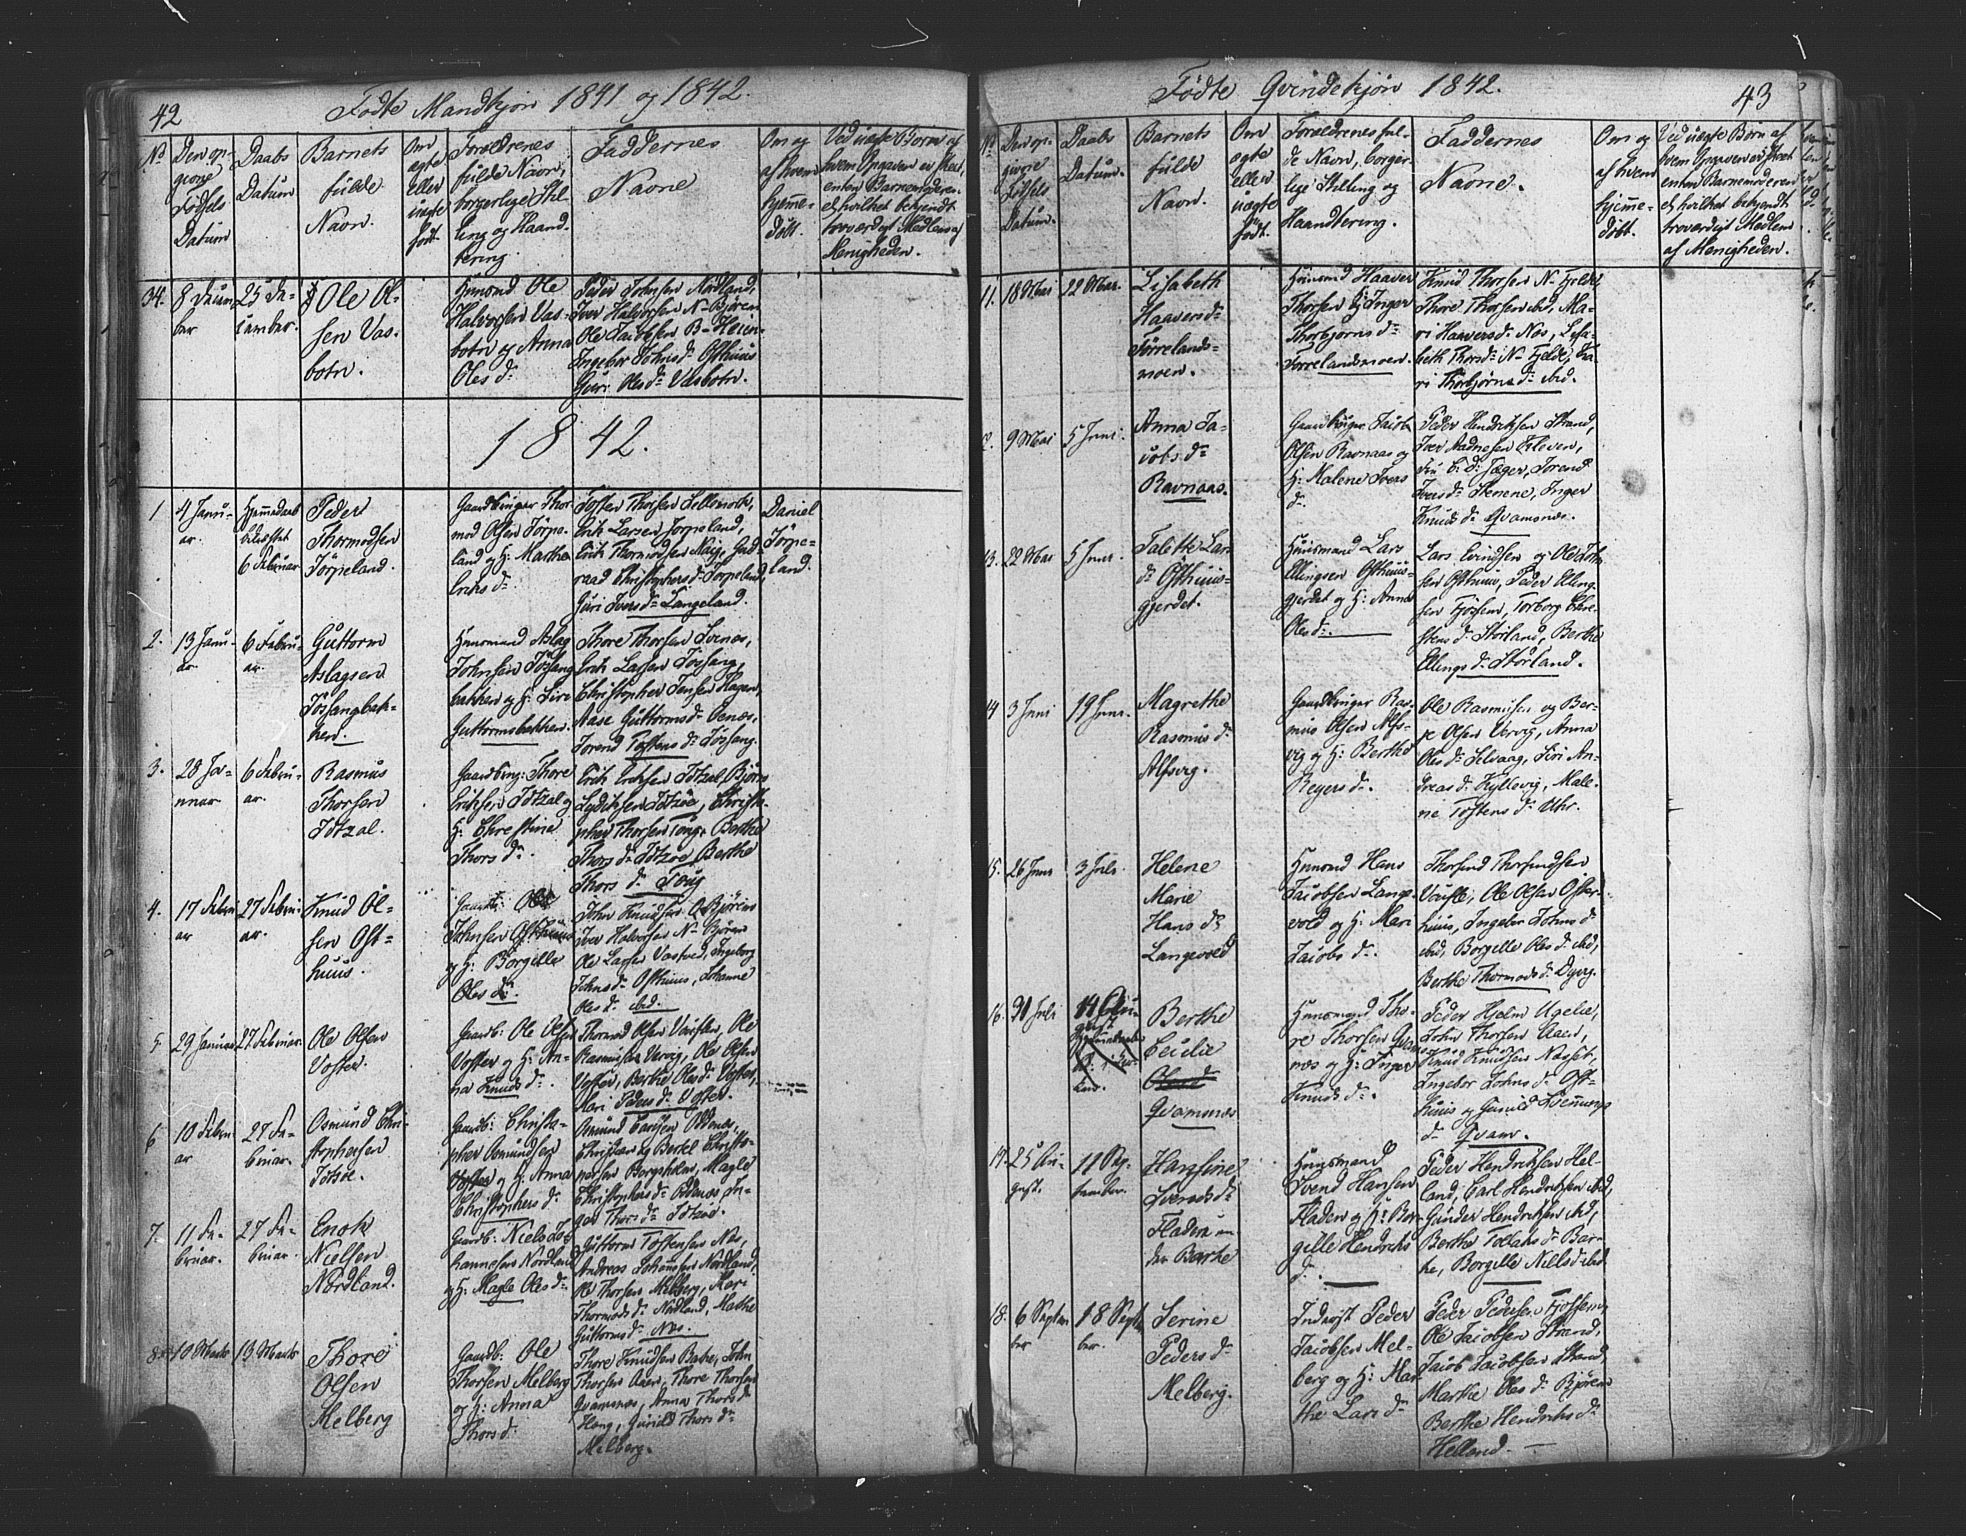 42
Fødte Mandkjøn 1841 og 1842.
No
Den op-
givne
Fødsels
Datum
Daabs
Datum
Barnets
fulde
Navn.
Om
ægte
eller
uægte
født.
Forældrenes
fulde Navn,
borgerlige Stil-
ling og Haand-
tering.
Faddernes
Navne
Om og
af hvem
hjemme-
døbt.
Ved uægte Børn af
hvem Opgaven er skeet,
enten Barnemoderen
el. hvilket bekjendt
troværdigt Medlem af
Menigheden.
34.
8 Decem
ber
25 De-
cember.
Ole Ol-
sen Vas-
botn.
Huusmd Ole
Halvorsen Vas-
botn og Anna
Oles d.
Peder Johnsen Nordland,
Iver Halvorsen N-Bjøren
Ole Jacobsen B-
Ingebor Johns d. Osthuus
Guri Oles d. Vasbotn.
1842.
1
4 Janu-
ar.
Hjemmedaab
6 Februar
Peder
Thormodsen
Jørpeland.
Gaardbruger Thor-
mod Olsen Jørpe-
land og H: Marthe
Eriks d.
Tosten Thorsen Sellemork,
Erik Larsen Jørpeland,
Erik Thormodsen Naig, Gud-
raad Christophers d. Jørpeland,
Guri Ivers d. Langeland.
Daniel
Jørpe-
land.
2.
13 Janu-
ar.
6 Febru-
ar.
Guttorm
Aslagsen
Jøssangbak-
ken.
Huusmand Aslag
Johnsen Jøssang
bakken og H: Siri
Guttorms
Thore Thorsen Svenes,
Erik Larsen Jøssang,
Christopher Jensen Hagen,
Aase Guttorms d.
Jorend Tostens d. Jøssang.
3.
28 Ja-
nuar.
6 Febru-
ar.
Rasmus
Thorsen
Idtzal.
Gaardbrug: Thore
Eriksen Idtzal og
H: Christine
Thors d.
Erik Eriksen Idtzal Bjørn
Lydiksen Idtzøe, Christo-
pher Thorsen Toug, Berthe
Thors d. Idtzøe, Berthe
Thors d. Toug
4.
17 Febru
ar
27 Febru
ar.
Knud Ol-
sen Ost-
huus.
Gaardb: Ole
Johnsen Osthuus
og H: Borgille
Oles d.
John Knudsen Ø Bjøren
Iver Halvorsen N- Bjøren
Ole Larsen Vastved, Ingeborg
Johns d. Osthuus, Johanne
Oles d. ibid.
5
29 Januar
27 Februar.
Ole Olsen
Voster.
Gaardb: Ole Olsen
Voster og H: An-
na Knuds d.
Thormod Olsen Voster, Ole
Rasmusen Vervig, Ole Olsen
Voster, Berthe Oles d. Voster,
Mari Peders d. Voster.
6
10 Febru
ar
27 Fe-
bruar.
Osmund Chri-
stophersen
Idtsøe.
Gaardb: Christo-
pher Osmundsen
Voster og H: Anna
Christophers d.
Osmund Odenæs,
Christian og Bertel Christo-
persen Børgsholm, Magle
Christophers d. Odenæs, In-
ger Thors d. Idtzøe.
7.
11 Fe-
bruar.
27 Fe-
bruar.
Enok
Nielsen
Nordland.
Gaardb: Niels Jo-
hannesen Nordland
og H: Magle Oles d.
Guttorm Tostensen Næs,
Andreas Johansen Nordland,
Ole Thorsen Melberg, Mari
Thormods d. Nordland, Marthe
Guttorms d. Næs.
8
10 Marts
13 Marts
Thore
Olsen
Melberg
Gaardb: Ole
Thorsen Melberg
og H: Anna
Thors d.
Thore Knudsen Barke, John
Thorsen Aaen, Thore Thorsen
Qvamsnæs, Anna Thors d.
Houg, Gurild Thors d.
Melberg.
Fødte Qvindekjøn 1842.
43
No
Den op-
givne
Fødsels
Datum.
Daabs
Datum.
Barnets
fulde
Navn.
Om
ægte
eller
uægte
født.
Forældrenes ful-
de Navn, borger-
lige Stilling og
Haandtering.
Faddernes
Navne.
Om og
af hvem
hjemme-
døbt.
Ved uægte Børn af
hvem Opgaven er skeet
enten Barnemoderen
el. hvilket bekjendt
troværdigt Medlem
af Menigheden.
11.
18 Mai
22 Mai.
Lisabeth
Haavers d.
Torrelands-
moen.
Huusmd Haaver
Thorsen H: Inger
Thorbjørns d.
Torrelandsmoen.
Knud Thorsen N- Fjelde
Thore Thorsen ibd, Ma-
ri Haavers d. Nes, Lisa-
beth Thors d. N- Fjelde,
Thorbjørns d. ibid.
9 Mai
5 Juni.
Anna Ja-
cobs d.
Ravnaas.
Gaardbruger Jacob
Olsen Ravnaas og
H: Malene Ivers
d.
Peder Hendriksen Strand,
Iver Aadnesen Kleven,
Jæger, Jorand
Ivers d. Skeiene, Inger
Knuds d. Qvamsnes.
13.
22 Mai
5 Juni.
Talette Lars
d. Osthuus-
gjerdet.
Huusmand Lars
Ellingsen Osthuus-
gjerdet og H: Anna
Oles d.
Lars Evindsen og Ole John
sen Osthuus, Peder Elling-
sen Fjøssene, Torborg Chri-
stens d. Storland, Berthe
Ellings d. Storland.
14
3 Juni
19 Juni.
Magrethe
Rasmus d.
Alfsvig.
Gaardbruger Ras-
mus Olsen Alfs-
vig og H: Berthe
Reyers d.
Ole Rasmusen og Ber-
je Olsen Vervig, Anna
Oles d. Selvaag, Siri An-
dreas d. Kyllevig, Male-
ne Tostens d. Uhr.
15.
26 Juni
3 Juli.
Helene
Marie
Hans d.
Langevold
Huusmd Hans
Jacobsen Lange-
vold og H: Mari
Jacobs d.
Thorsend Thorsendsen
Ole Olsen Oster-
huus, Ingebor Johns d.
ibid, Borgille Oles d. ibid,
Berthe Thormods d. Dyerg.
16.
31 Juli
14 Au-
gust
Berthe
Cecilie
Qvamsnæs
Huusmand Tho-
re Thorsen Qvams
næs og H: Inger
Knuds d.
Peder Hjelm Ugelie,
John Thorsen Aaen,
Knud Knudsen Nasset,
Ingebor Johns d. Ost-
huus og Gunild Svenungs
d. Qvam.
17.
25 Au-
gust.
11 Sep-
tember.
Hansine
Svends d.
Fladen un-
der Barke
Huusmand
Svend Hansen
Fladen og H: Bor-
gille Hendriks
d.
Peder Hendriksen Hel-
land, Carl Hendriksen ibid,
Gunder Hendriksen ibid,
Berthe Tollaks d. Bar-
ke, Borgille Niels d. ibid
18.
6 Septem
ber
18 Sept
ber.
Serine
Peders d.
Melberg.
Inderst Peder
Jacobsen Mel-
berg og H: Mar
the Lars d.
Peder Pedersen Fjøssene,
Ole Jacobsen Strand,
Jacob Jacobsen Strand,
Marthe Oles d. Bjøren
Berthe Hendriks d.
Helland.